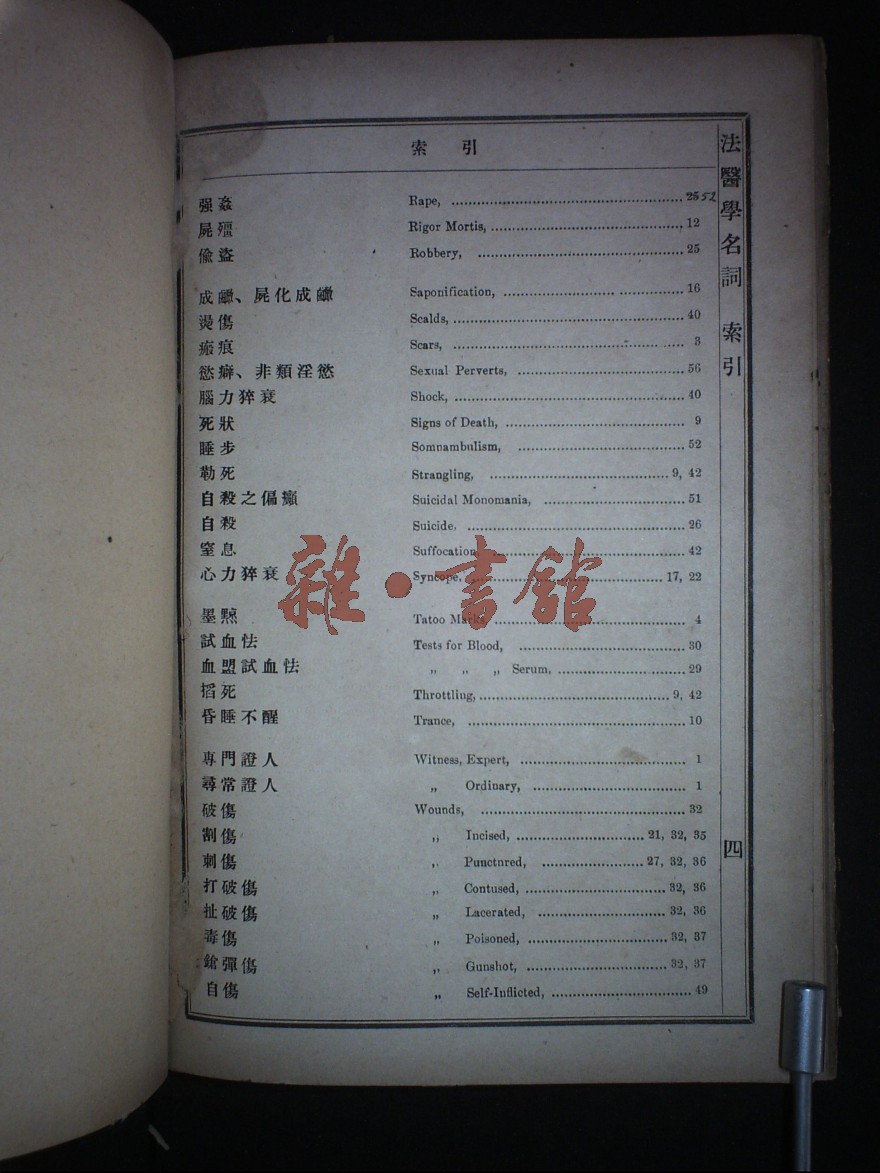 索引
强姦 Rape, 25 52
屍殭 Rigor Mortis, 12
偸盜 Robbery, 25
成鱲、屍化成鱲 Saponification, 16
燙傷 Scalds, 40
瘢痕 Scars, 3
慾癖、非類淫慾 Sexual Perverts, 56
腦力猝衰 Shock, 40
死狀 Signs of Death, 9
睡步 Somnambulism, 52
勒死 Strangling, 9, 42
自殺之偏癲 Suicidal Monomania, 51
自殺 Suicide, 26
窒息 Suffocation, 42
心力猝衰 Syncope, 17, 22
墨㸃 Tatoo Marks, 4
試血怯 Tests for Blood, 30
血盟試血怯 „ „ „ Serum, 29
搯死 Throttling, 9, 42
昏睡不醒 Trance, 10
專門證人 Witness, Expert, 1
尋常證人 „ Ordinary, 1
破傷 Wounds, 32
割傷 „ Incised, 21, 32, 35
刺傷 „ Punctured, 27, 32, 36
打破傷 „ Contused, 32, 36
扯破傷 „ Lacerated, 32, 36
毒傷 „ Poisoned, 32, 37
鎗彈傷 „ Gunshot, 32, 37
自傷 „ Self-Inflicted, 49
法醫學名詞 索引
四
雜·書館